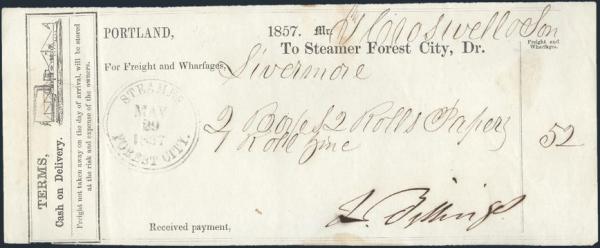 PORTLAND, 1857. Mr. Croswell & Son
To Steamer Forest City, Dr. Freight and Wharfages.
For Freight and Wharfages, Livermore
STEAMER
MAY
29
1857
FOREST CITY.
2 2 Rolls Paper 52
1 Roll Zinc
L. Billings
Received payment,
TERMS,
Cash on Delivery.
Freight not taken away on the day of arrival, will be stored
at the risk and expense of the owners.